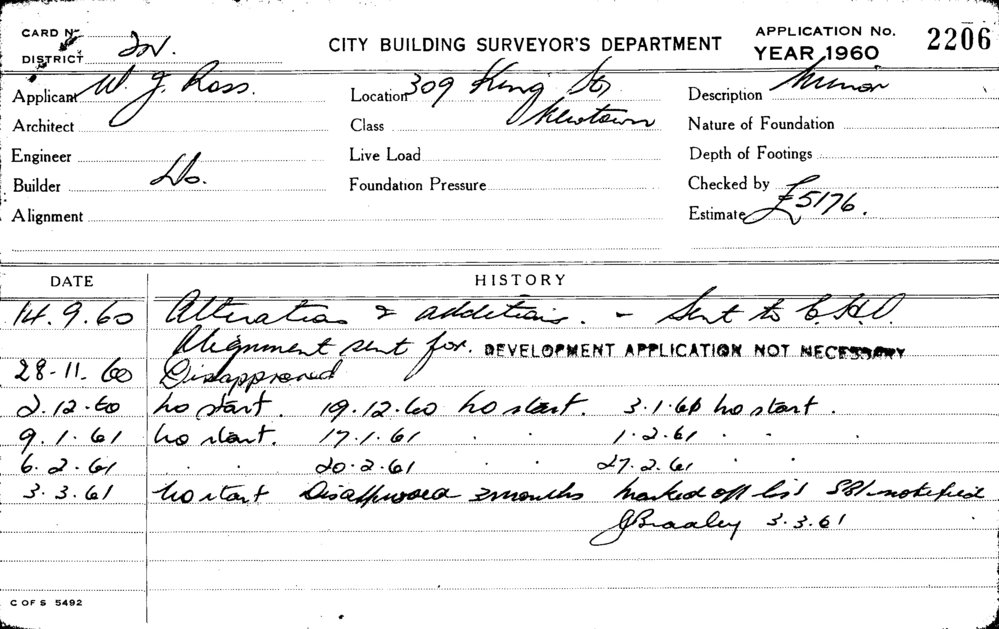 CARD No
DISTRICT
CITY BUILDING SURVEYOR'S DEPARTMENT
APPLICATION No. 2206
YEAR 1960
Applicant W. J. Ross.
Location 309 King St, Newtown
Description Minor
Architect
Class
Nature of Foundation
Engineer
Live Load
Depth of Footings
Builder Do.
Foundation Pressure
Checked by
Alignment
Estimate £5176.
DATE HISTORY
14.9.60 Alterations & additions. - Sent to C.H.O.
Alignment sent for. DEVELOPMENT APPLICATION NOT NECESSARY
28-11.60 Disapproved
2.12.60 no start. 19.12.60 no start. 3.1.61 no start.
9.1.61 no start. 17.1.61 . . 1.2.61 . .
6.2.61 . . 20.2.61 . . 27.2.61 . .
3.3.61 no start Disapproved 3 months marked off list SBI notified
JBradley 3.3.61
C OF S 5492